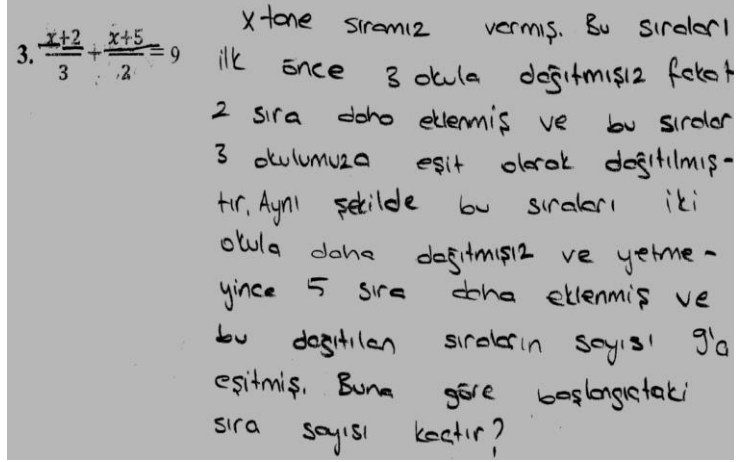 3. x+2/3 + x+5/2 = 9
x tane sıramız varmış. Bu sıraları
ilk önce 3 okula dağıtmışız fakat
2 sıra daha eklenmiş ve bu sıralar
3 okulumuza eşit olarak dağıtılmış-
tır. Aynı şekilde bu sıraları iki
okula daha dağıtmışız ve yetme-
yince 5 sıra daha eklenmiş ve
bu dağıtılan sıraların sayısı 9'a
eşitmiş. Buna göre başlangıçtaki
sıra sayısı kaçtır?